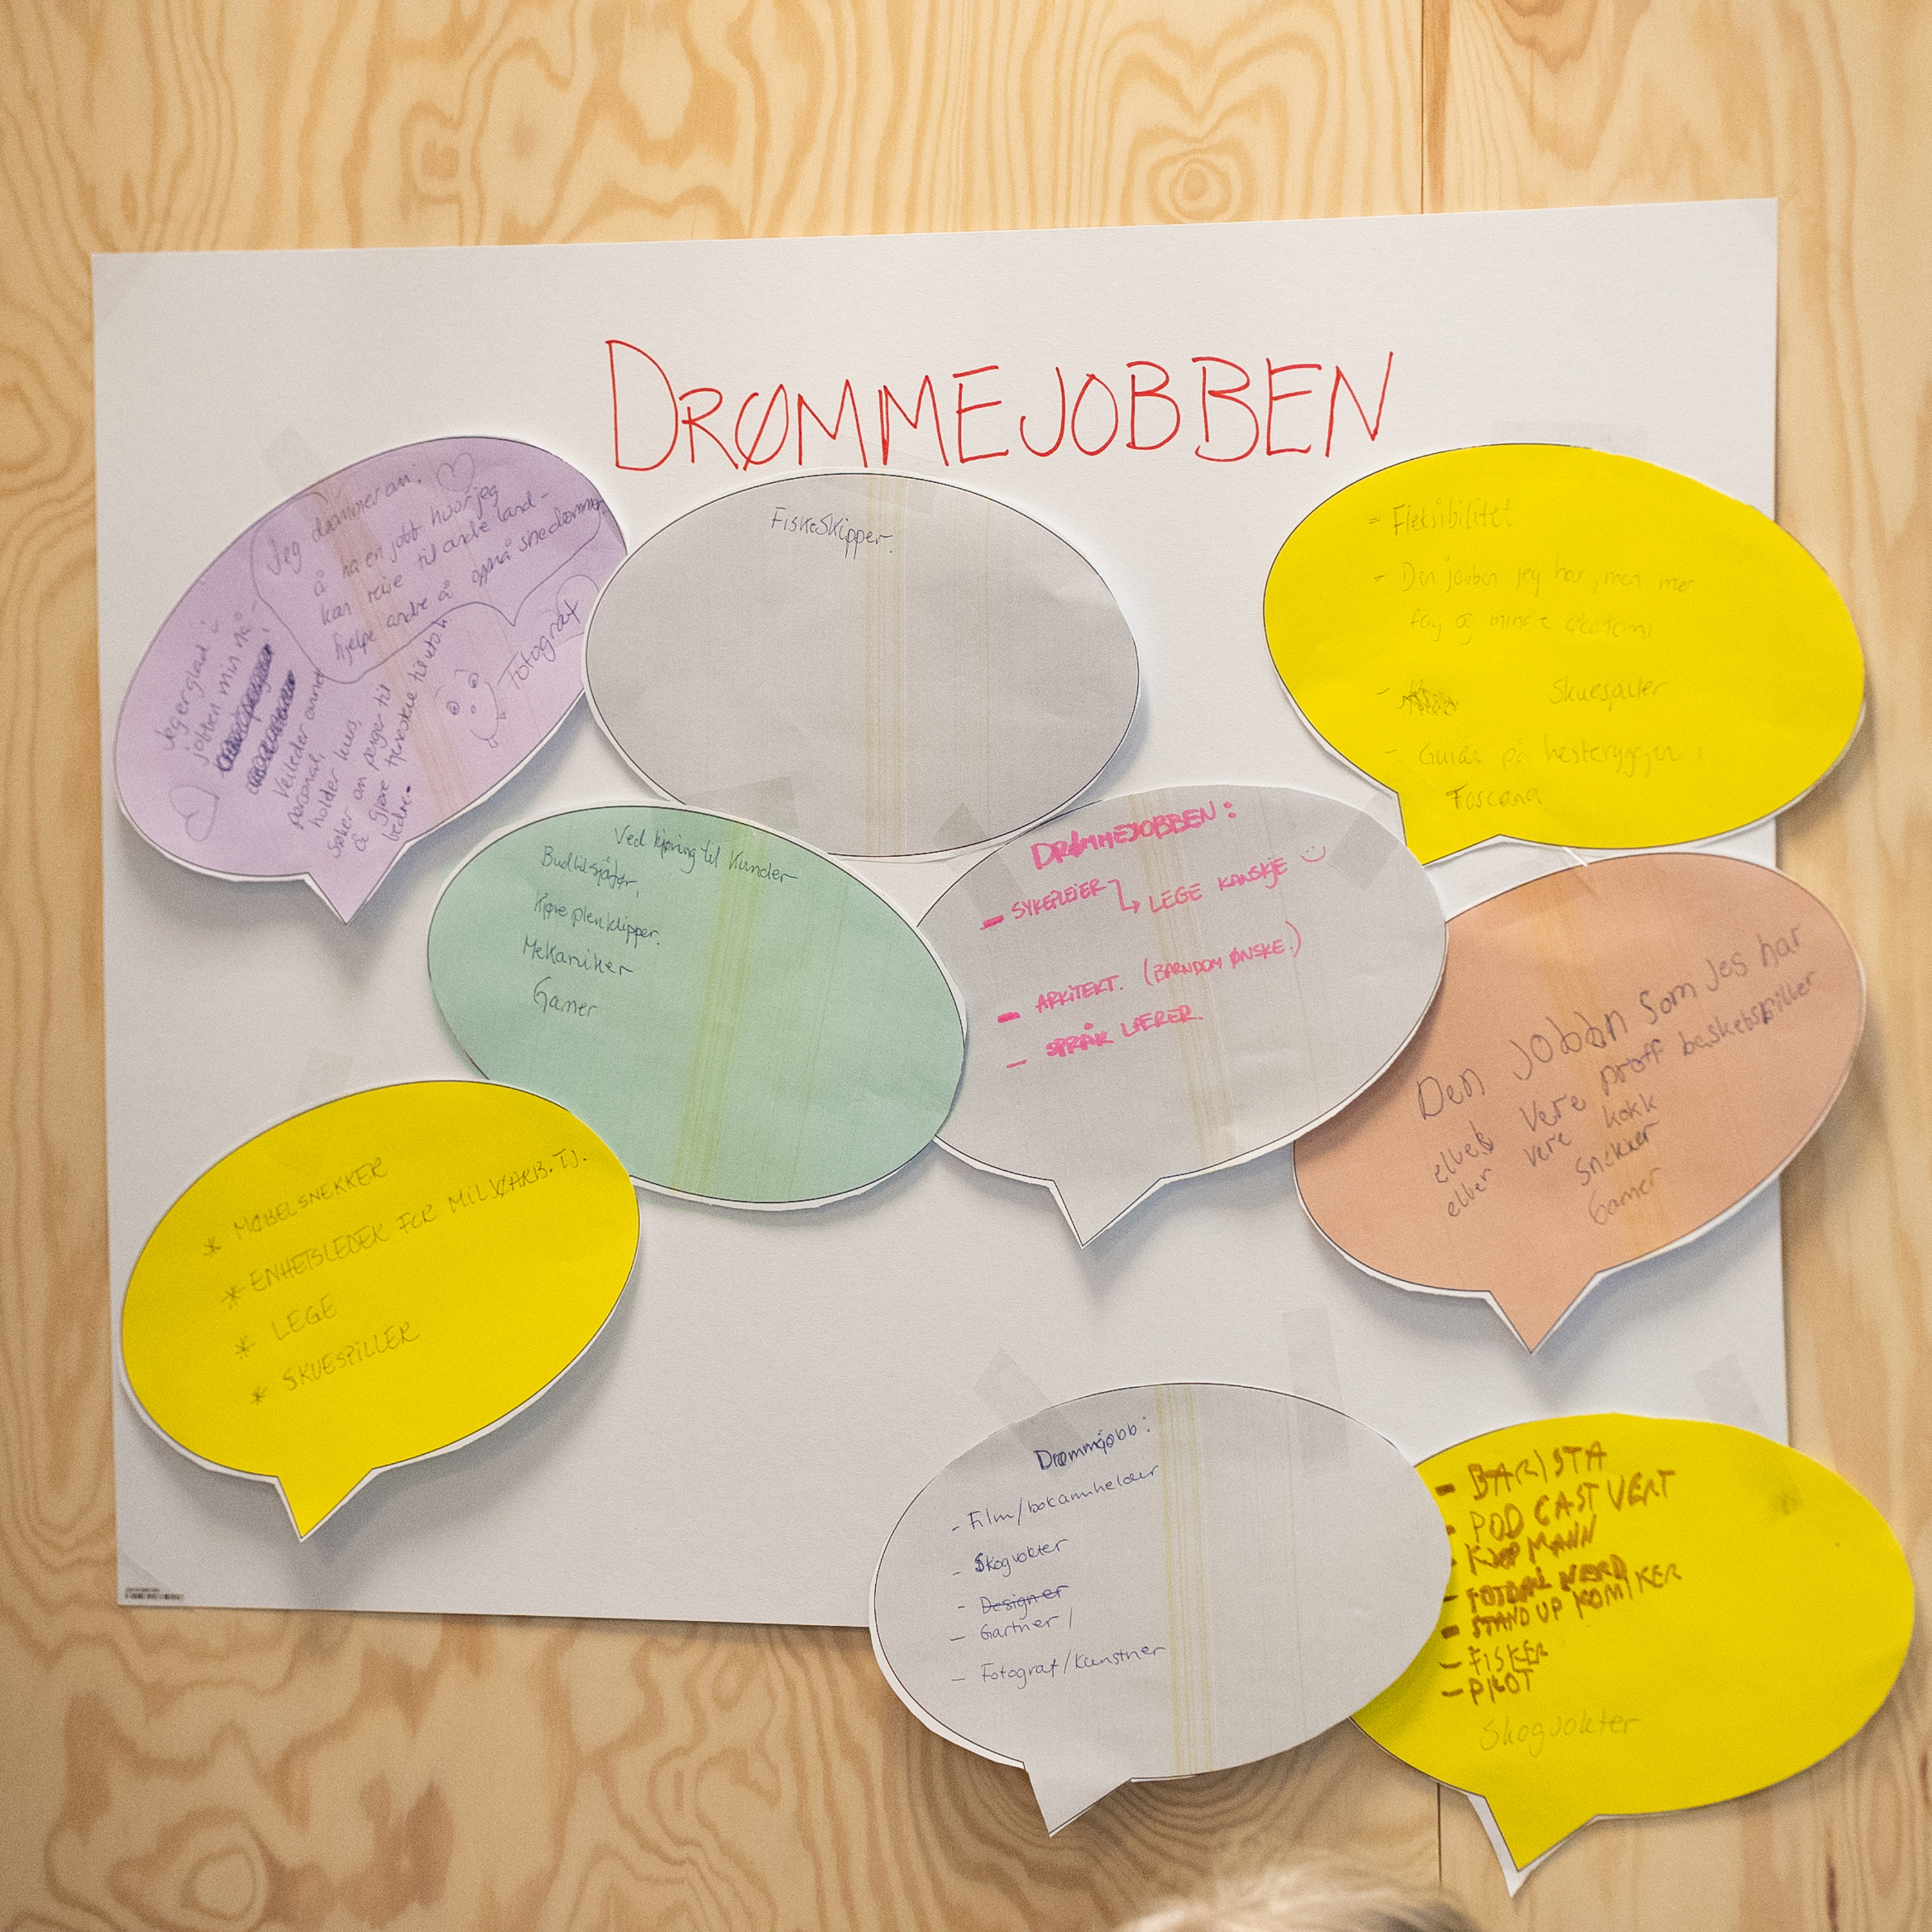 DRØMMEJOBBEN
Jeg drømmer om:
å ha en jobb hvor jeg
kan reise til andre land -
hjelpe andre å oppnå sine drømmer
Fotograf
Jeg er glad i
jobben min nå -
Veileder annet
personal,
holder kurs,
Søker om penger til
å gjøre tjenestene til utoh
bedre.
FiskeSkipper.
- Fleksibilitet
- Den jobben jeg har, men mer
fag og mindre økonomi
- Skuespiller
- Guide på hesteryggen i
Toscana
Ved kjøring til Kunder
Budbilsjåfør,
Kjøre plenklipper.
Mekaniker
Gamer
DRØMMEJOBBEN:
- SYKEPLEIER
LEGE KANSKJE
- ARKITEKT. (BARNDOM ØNSKE.)
- SPRÅK LÆRER.
Den Jobbn Som Jeg har
vere proff basketspiller
eller vere kokk
Snekker
Gamer
* MØBELSNEKKER
* ENHETSLEDER FOR MILJØARB.TJ.
* LEGE
* SKUESPILLER
Drømmejobb:
- Film/bokanmelder
- Skogvokter
- Designer
- Gartner /
- Fotograf/Kunstner
- BARISTA
- POD CAST VERT
- KJØPMANN
- FOTBALL NERD
- STAND UP KOMIKER
- FISKER
- PILOT
Skogvokter